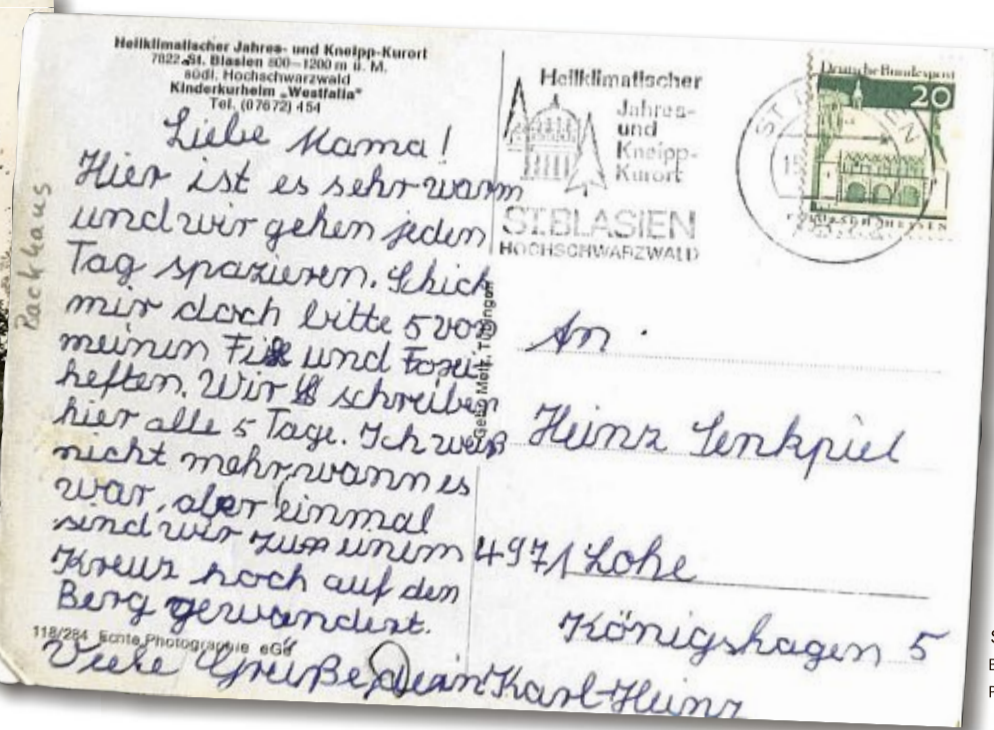 Heilklimatischer Jahres- und Kneipp-Kurort
7822 St. Blasien 800–1200 m ü. M.
südl. Hochschwarzwald
Kinderkurheim „Westfalia"
Tel. (07672) 454
Liebe Mama!
Hier ist es sehr warm
und wir gehen jeden
Tag spazieren. Schick
mir doch bitte 5 von
meinen Fix und Foxi-
heften. Wir schreiben
hier alle 5 Tage. Ich weiß
nicht mehr, wann es
war, aber einmal
sind wir zum einem
Kreuz hoch auf den
Berg gewandert.
Viele Grüße, Dein Karl-Heinz
118/284 Echte Photographie
Packhaus
Gebr. Metz, Tübingen
Heilklimatischer
Jahres-
und
Kneipp-
Kurort
ST. BLASIEN
HOCHSCHWARZWALD
Deutsche Bundespost
20
An
Heinz Senkpiel
4971 Lohe
Königshagen 5